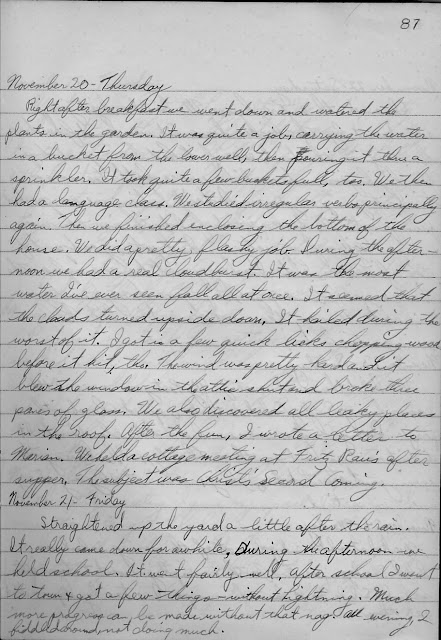 87
November 20 - Thursday
Right after breakfast we went down and watered the
plants in the garden. It was quite a job, carrying the water
in a bucket from the lower well, then pouring it thru a
sprinkler. It took quite a few buckets full, too. We then
had a language class. We studied irregular verbs principally
again. Then we finished enclosing the bottom of the
house. We did a pretty flashy job. During the after-
noon we had a real cloudburst. It was the most
water I've ever seen fall all at once. It seemed that
the clouds turned upside down. It hailed during the
worst of it. I got in a few quick licks chopping wood
before it hit, tho. The wind was pretty hard and it
blew the window in the attic shut and broke three
panes of glass. We also discovered all leaky places
in the roof. After the fun, I wrote a letter to
Marian. We held a cottage meeting at Fritz Rau's after
supper. The subject was Christ's Second Coming.
November 21 - Friday
Straightened up the yard a little after the rain.
It really came down for awhile. During the afternoon we
held school. It went fairly well, after school I went
to town & got a few things - without lightning. Much
more progress can be made without that nag. All evening I
fiddled around, not doing much.